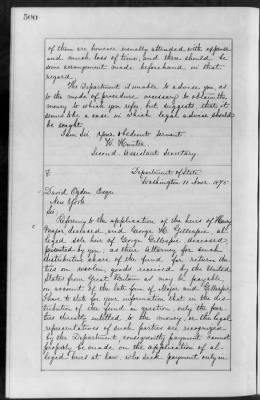 500
of them are, however usually attended with expense
and much loss of time, and there should be
some arrangement made beforehand in that
regard.
The Department is unable to advise you as
to the mode of procedure necessary to obtain the
money to which you refer, but suggests that it
seems to be a case in which legal advice should
be sought.
I am Sir, your obedient servant
W. Hunter,
Second Assistant Secretary
Department of State
Washington 11 June 1875
David Ogden Esqre
New York
Sir,
Referring to the application of the heirs of Henry
Major deceased and George H. Gillespie, al-
leged sole heir of George Gillespie deceased,
presented by you as their attorney for such
distributive share of the fund for return du-
ties on woolen goods received by the United
States from Great Britain as may be payable
on account of the late firm of Major and Gillespie,
I have to state for your information that in the dis-
tribution of the fund in question, only the par-
ties directly entitled to the money, or the legal
representatives of such parties are recognized
by the Department, consequently payment cannot
properly be made on the application of al-
leged heirs at law, who seek payment only in